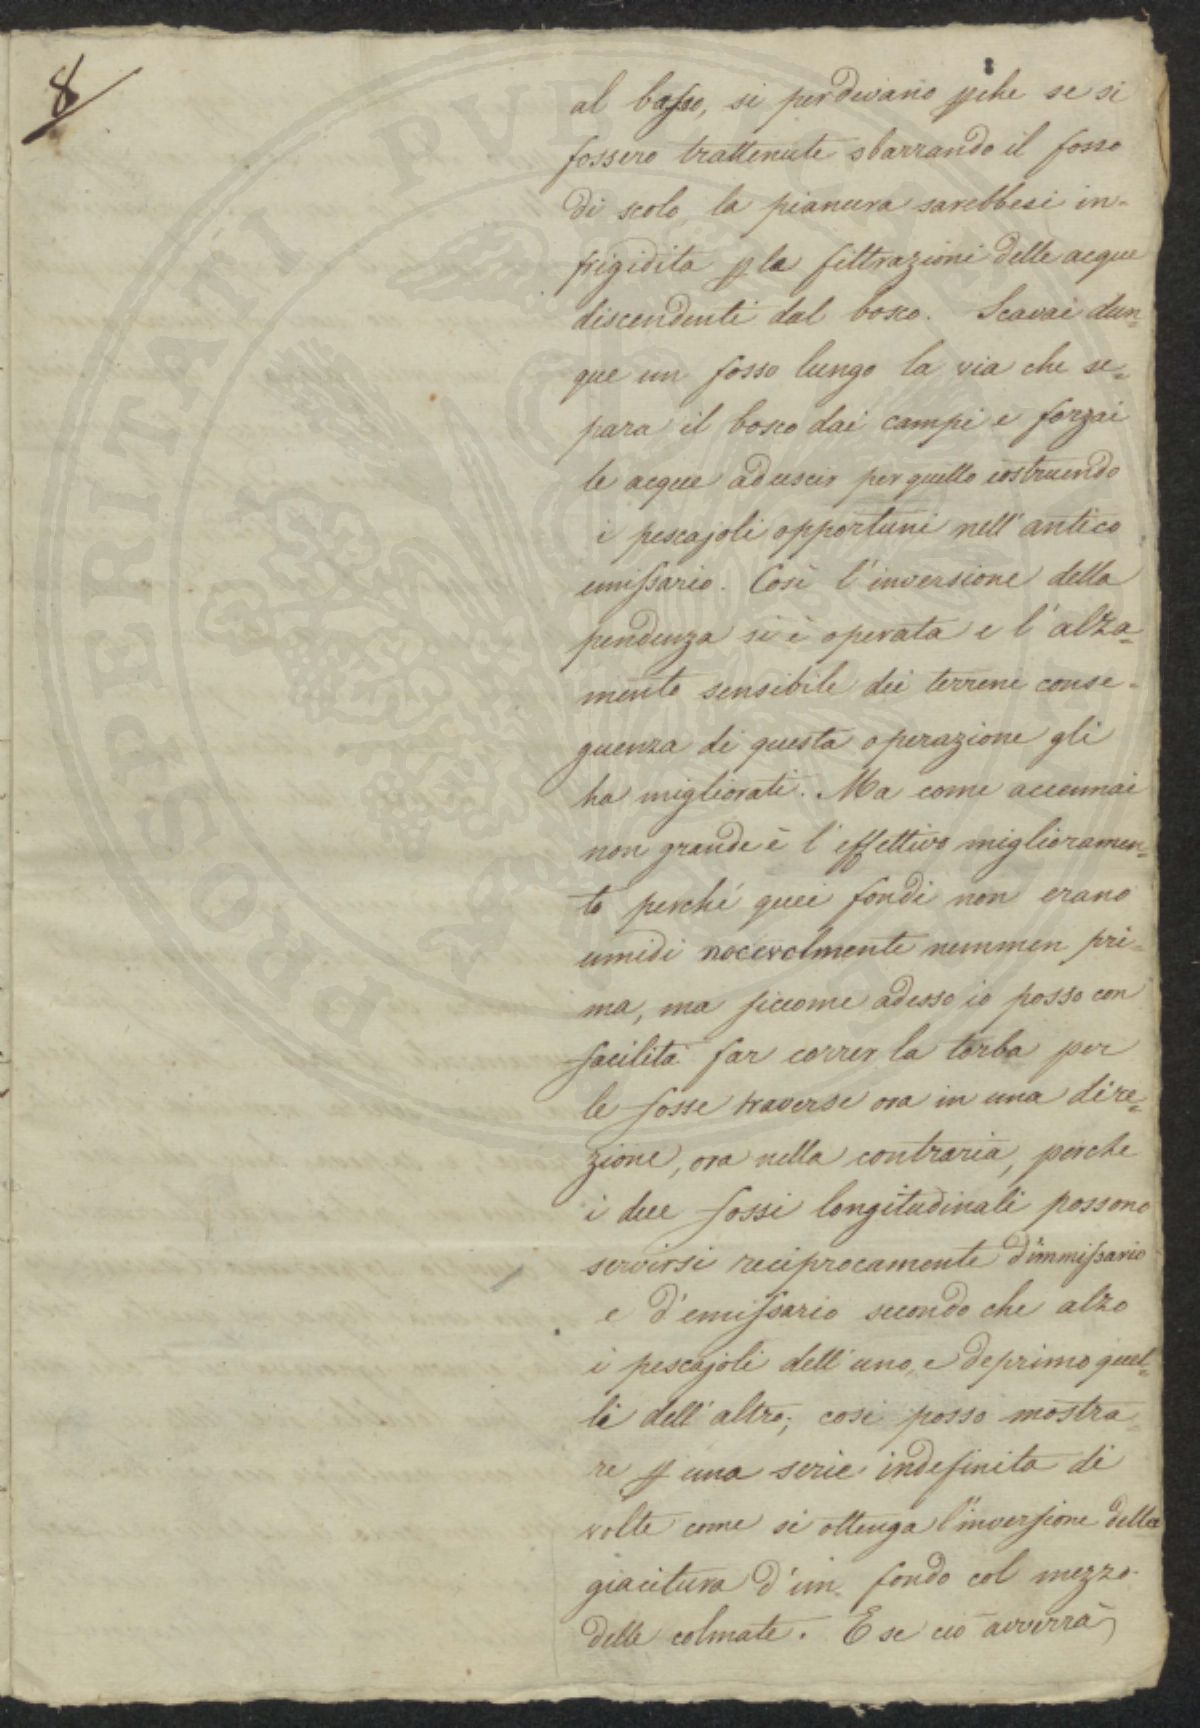 8
al basso, si perdevano pche se si
fossero trattenute sbarrando il fosso
di scolo, la pianura sarebbesi in-
frigidita p le filtrazioni delle acque
discendenti dal bosco. Scavai dun=
que un fosso lungo la via che se=
para il bosco dai campi e forzai
le acque ad uscir per quello costruendo
i pescajoli opportuni nell'antico
emissario. Così l'inversione della
pendenza si è operata e l'alza=
mento sensibile dei terreni conse-
guenza di questa operazione gli
ha migliorati. Ma come accennai
non grande è l'effettivo miglioramen=
to perché quei fondi non erano
umidi nocevolmente nemmen pri-
ma, ma siccome adesso io posso con
facilità far correr la torba per
le fosse traverse ora in una dire=
zione, ora nella contraria, perche
i due fossi longitudinali possono
servirsi reciprocamente d'immissario
e d'emissario secondo che alzo
i pescajoli dell'uno, e deprimo quel=
li dell'altro; così posso mostra-
re p una serie indefinita di
volte come si ottenga l'inversione della
giacitura d'un fondo col mezzo
delle colmate. E se ciò avverrà
PROSPERITATI PVBLICAE AVGENDAE